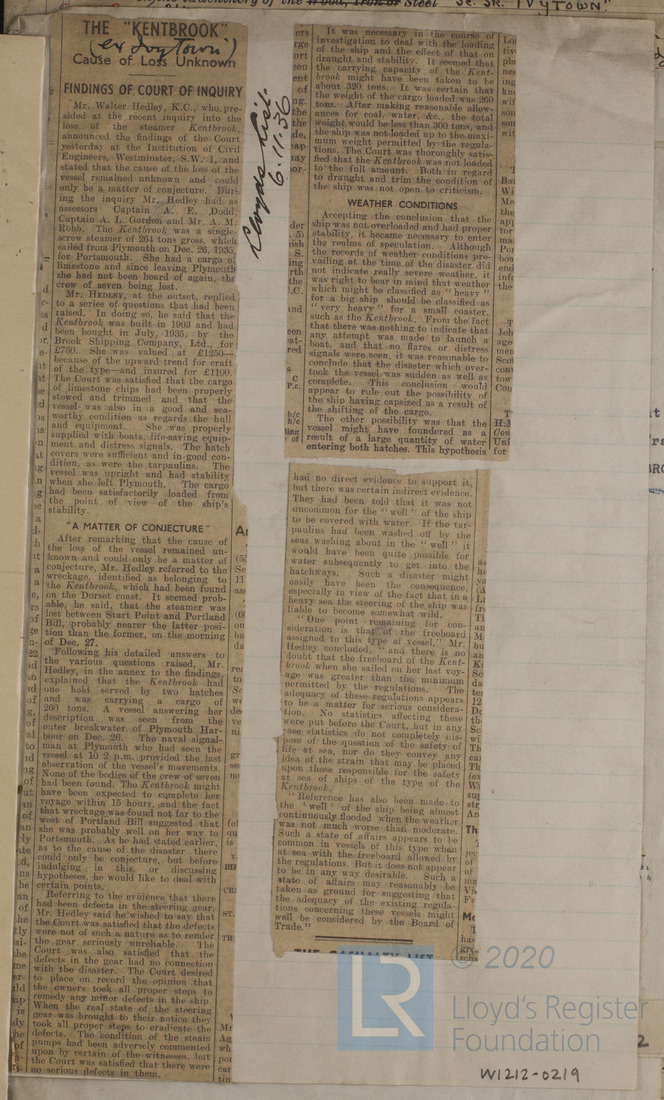 Steel "Sc. Sr. IVYTOWN."
THE "KENTBROOK"
(ex Ivytown)
Cause of Loss Unknown
FINDINGS OF COURT OF INQUIRY
Mr. Walter Hedley, K.C., who pre-
sided at the recent inquiry into the
loss of the steamer Kentbrook,
announced the findings of the Court
yesterday at the Institution of Civil
Engineers, Westminster, S.W. 1, and
stated that the cause of the loss of the
vessel remained unknown and could
only be a matter of conjecture. Dur-
ing the inquiry Mr. Hedley had as
assessors Captain A. E. Dodd,
Captain A. L. Gordon and Mr. A. M.
Robb. The Kentbrook was a single-
screw steamer of 264 tons gross, which
sailed from Plymouth on Dec. 26, 1935,
for Portsmouth. She had a cargo of
limestone and since leaving Plymouth
she had not been heard of again, the
crew of seven being lost.
Mr. HEDLEY, at the outset, replied
to a series of questions that had been
raised. In doing so, he said that the
Kentbrook was built in 1903 and had
been bought in July, 1935, by the
Brook Shipping Company, Ltd., for
£750. She was valued at £1250—
because of the upward trend for craft
of the type—and insured for £1100.
The Court was satisfied that the cargo
of limestone chips had been properly
stowed and trimmed and that the
vessel was also in a good and sea-
worthy condition as regards the hull
and equipment. She was properly
supplied with boats, life-saving equip-
ment and distress signals. The hatch
covers were sufficient and in good con-
dition, as were the tarpaulins. The
vessel was upright and had stability
when she left Plymouth. The cargo
had been satisfactorily loaded from
the point of view of the ship's
stability.
"A MATTER OF CONJECTURE"
After remarking that the cause of
the loss of the vessel remained un-
known and could only be a matter of
conjecture, Mr. Hedley referred to the
wreckage, identified as belonging to
the Kentbrook, which had been found
on the Dorset coast. It seemed prob-
able, he said, that the steamer was
lost between Start Point and Portland
Bill, probably nearer the latter posi-
tion than the former, on the morning
of Dec. 27.
Following his detailed answers to
the various questions raised, Mr.
Hedley, in the annex to the findings,
explained that the Kentbrook had
one hold served by two hatches
and was carrying a cargo of
260 tons. A vessel answering her
description was seen from the
outer breakwater of Plymouth Har-
bour on Dec. 26. The naval signal-
man at Plymouth who had seen the
vessel at 10 2 p.m. provided the last
observation of the vessel's movements.
None of the bodies of the crew of seven
had been found. The Kentbrook might
have been expected to complete her
voyage within 15 hours, and the fact
that wreckage was found not far to the
west of Portland Bill suggested that
she was probably well on her way to
Portsmouth. As he had stated earlier,
as to the cause of the disaster there
could only be conjecture, but before
indulging in this, or discussing
hypotheses, he would like to deal with
certain points.
Referring to the evidence that there
had been defects in the steering gear,
Mr. Hedley said he wished to say that
the Court was satisfied that the defects
were not of such a nature as to render
the gear seriously unreliable. The
Court was also satisfied that the
defects in the gear had no connection
with the disaster. The Court desired
to place on record the opinion that
the owners took all proper steps to
remedy any minor defects in the ship.
When the real state of the steering
gear was brought to their notice they
took all proper steps to eradicate the
defects. The condition of the steam
pumps had been adversely commented
upon by certain of the witnesses, but
the Court was satisfied that there were
no serious defects in them.
Lloyds List
6.11.36
It was necessary in the course of
investigation to deal with the loading
of the ship and the effect of that on
draught and stability. It seemed that
the carrying capacity of the Kent-
brook might have been taken to be
about 320 tons. It was certain that
the weight of the cargo loaded was 260
tons. After making reasonable allow-
ances for coal, water, &c., the total
weight would be less than 300 tons, and
the ship was not loaded up to the maxi-
mum weight permitted by the regula-
tions. The Court was thoroughly satis-
fied that the Kentbrook was not loaded
to the full amount. Both in regard
to draught and trim the condition of
the ship was not open to criticism.
WEATHER CONDITIONS
Accepting the conclusion that the
ship was not overloaded and had proper
stability, it became necessary to enter
the realms of speculation. Although
the records of weather conditions pre-
vailing at the time of the disaster did
not indicate really severe weather, it
was right to bear in mind that weather
which might be classified as "heavy"
for a big ship should be classified as
"very heavy" for a small coaster,
such as the Kentbrook. From the fact
that there was nothing to indicate that
any attempt was made to launch a
boat, and that no flares or distress
signals were seen, it was reasonable to
conclude that the disaster which over-
took the vessel was sudden as well as
complete. This conclusion would
appear to rule out the possibility of
the ship having capsized as a result of
the shifting of the cargo.
The other possibility was that the
vessel might have foundered as a
result of a large quantity of water
entering both hatches. This hypothesis
had no direct evidence to support it,
but there was certain indirect evidence.
They had been told that it was not
uncommon for the "well" of the ship
to be covered with water. If the tar-
paulins had been washed off by the
seas washing about in the "well" it
would have been quite possible for
water subsequently to get into the
hatchways. Such a disaster might
easily have been the consequence,
especially in view of the fact that in a
heavy sea the steering of the ship was
liable to become somewhat wild.
"One point remaining for con-
sideration is that of the freeboard
assigned to this type of vessel," Mr.
Hedley concluded, "and there is no
doubt that the freeboard of the Kent-
brook when she sailed on her last voy-
age was greater than the minimum
permitted by the regulations. The
adequacy of these regulations appears
to be a matter for serious considera-
tion. No statistics affecting these
were put before the Court, but in any
case statistics do not completely dis-
pose of the question of the safety of
life at sea, nor do they convey any
idea of the strain that may be placed
upon those responsible for the safety
at sea of ships of the type of the
Kentbrook.
"Reference has also been made to
the 'well' of the ship being almost
continuously flooded when the weather
was not much worse than moderate.
Such a state of affairs appears to be
common in vessels of this type when
at sea with the freeboard allowed by
the regulations. But it does not appear
to be in any way desirable. Such a
state of affairs may reasonably be
taken as ground for suggesting that
the adequacy of the existing regula-
tions concerning these vessels might
well be considered by the Board of
Trade."
THE CASUALTY LIST
© 2020
LR
Lloyd's Register
Foundation
W1212-0219